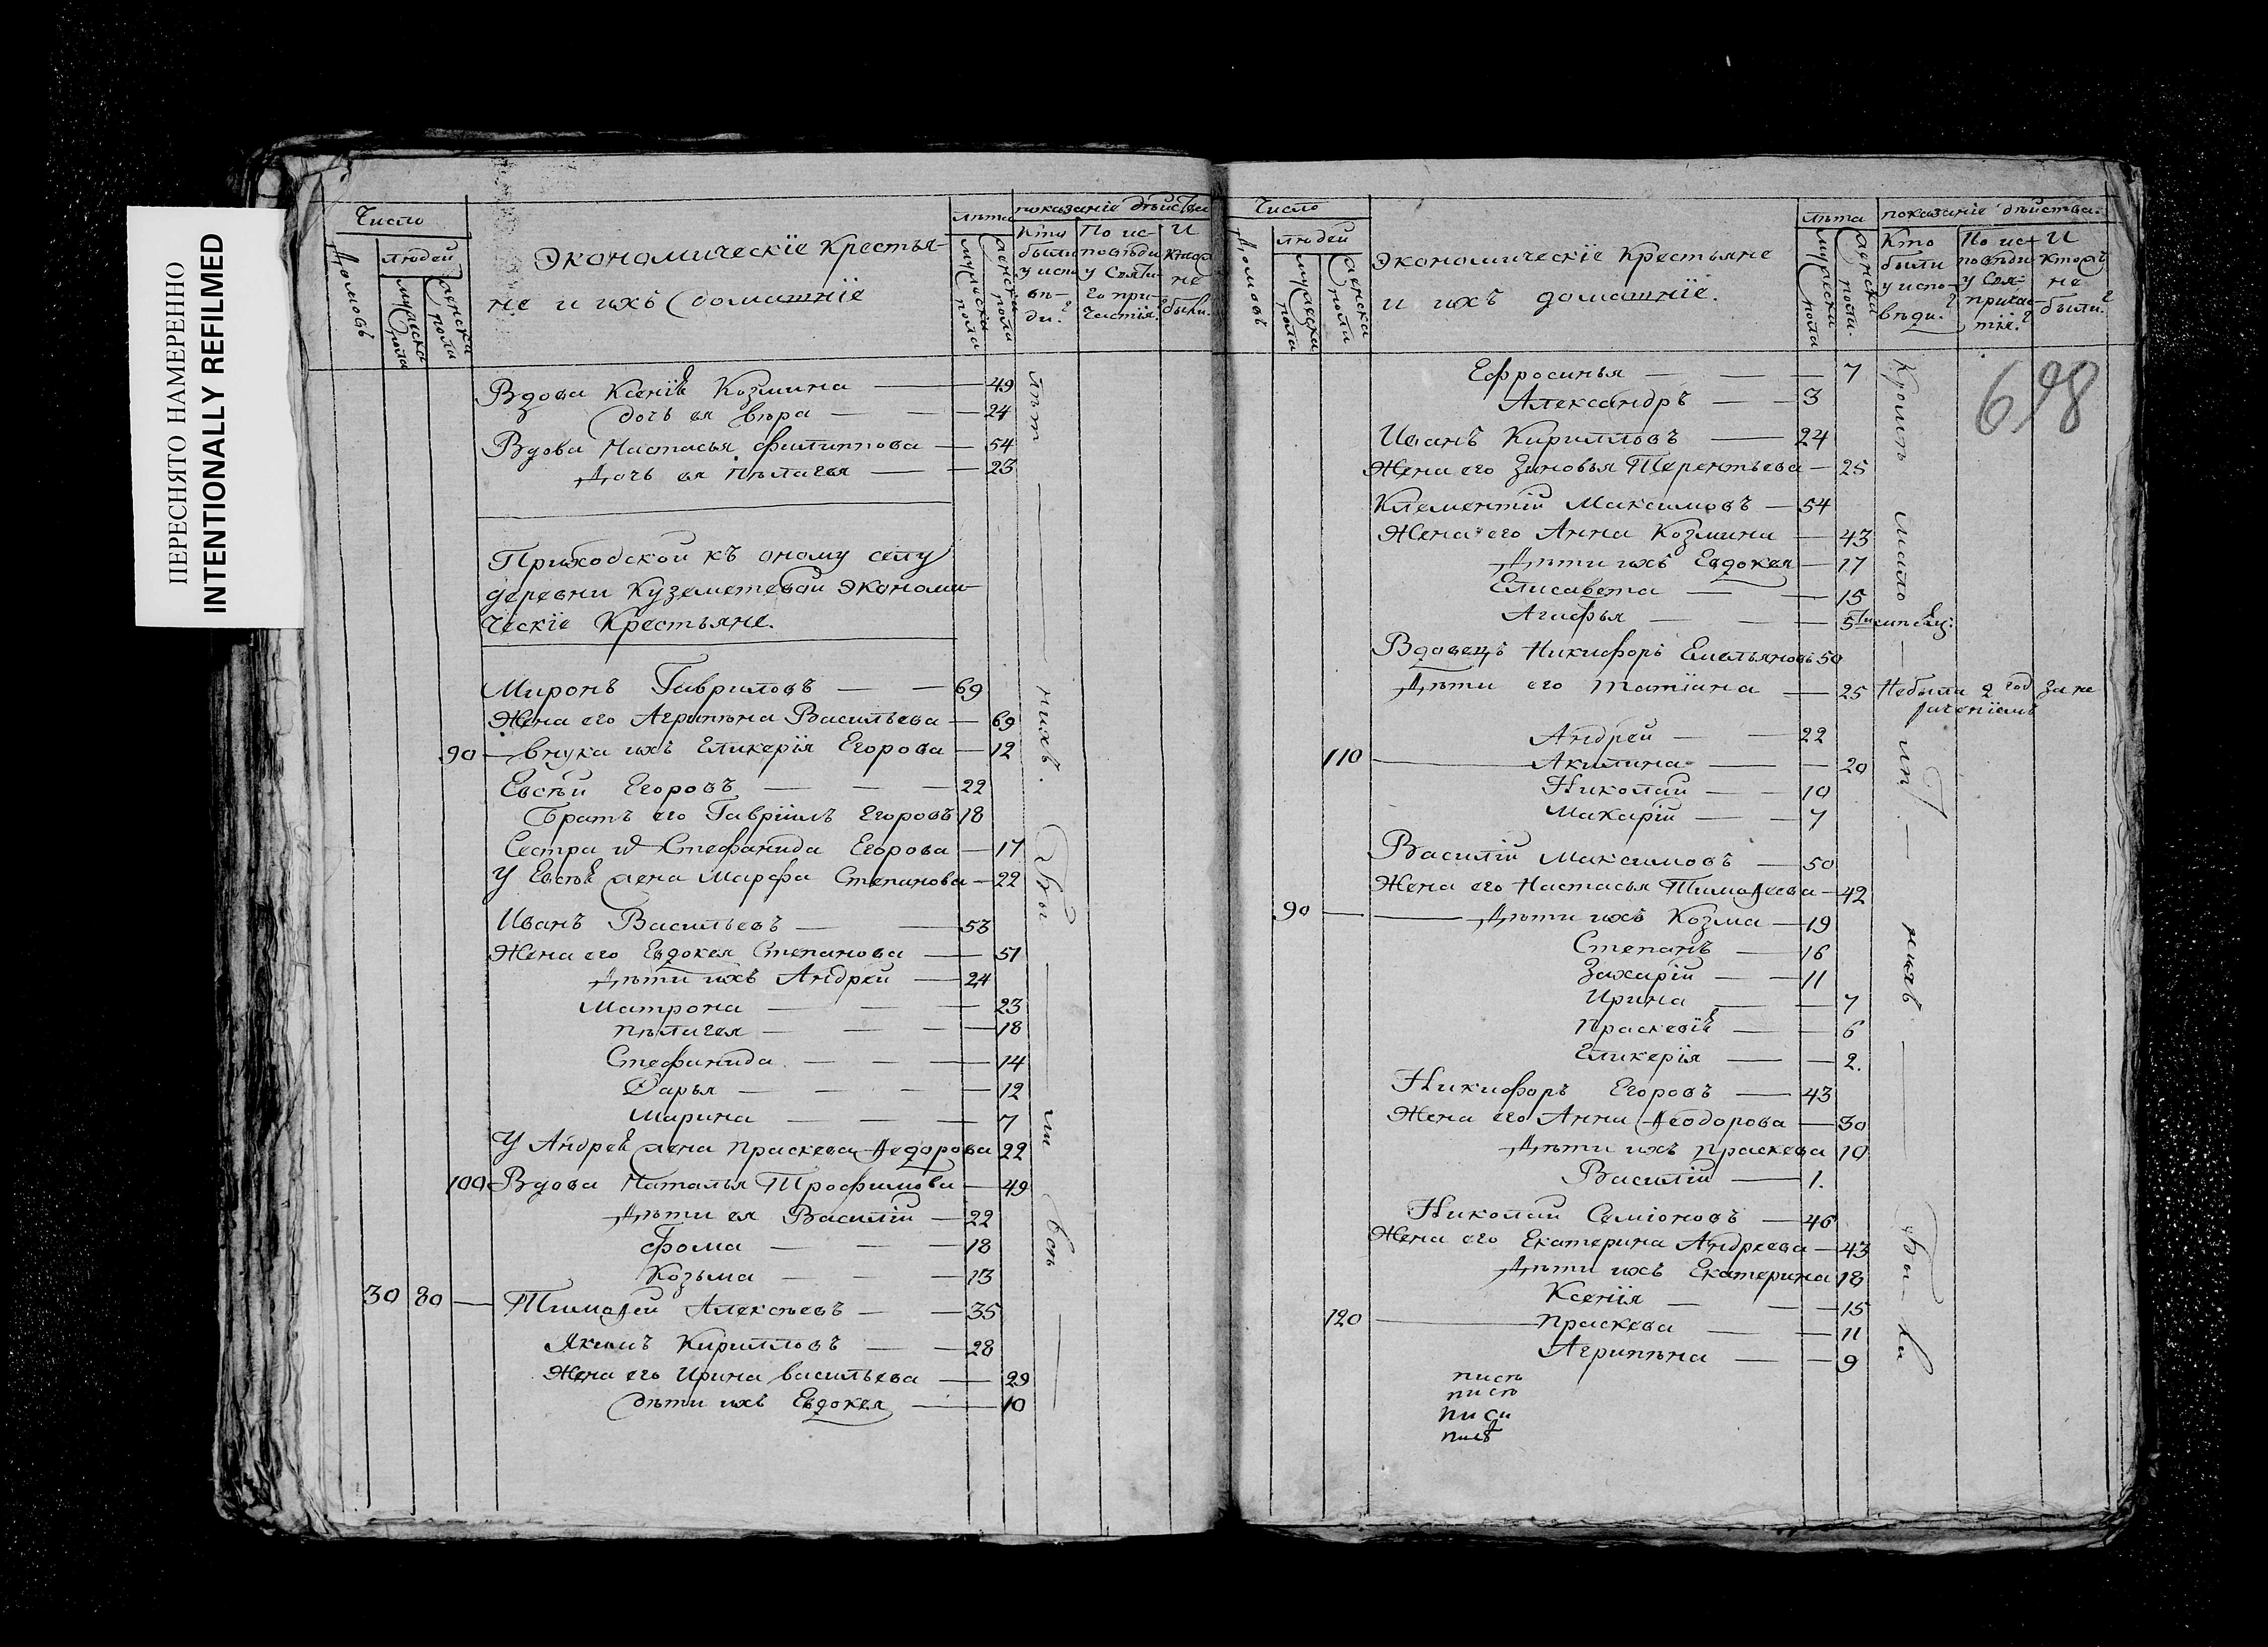 ПЕРЕСНЯТО НАМЕРЕННО
INTENTIONALLY REFILMED
Число
Домовъ
людей
мужеска пола
женска пола
Экономическїе Крестья-
не и ихъ домашнїе
лѣта
мужеска пола
женска пола
показанїе дѣйства
Кто были у испо вѣ- ди?
По ис- повѣди у Свята- го при- частїя?
И кторы не были?
Вдова Ксенїѣ Козмина — 49
дочь ея Вѣра — — 24
Вдова Настасья Филиппова — 54
Дочь ея Пѣлагея — — 23
Приходской къ оному селу
деревни Куземетевой Экономи-
ческїе Крестьяне.
Миронъ Гавриловъ — — 69
Жена его Агрипѣна Васильева — 69
90 — внука ихъ Гликерїя Егорова — 12
Евсѣй Егоровъ — — — 22
Братъ его Гаврїилъ Егоровъ 18
Сестра Стефанида Егорова — 17
У Евсѣѣ жена Марфа Степанова — 22
Иванъ Васильевъ — — 53
Жена его Евдокея Степанова — 51
Дѣти ихъ Андрей — 24
Матрона — — — 23
Пѣлагея — — — 18
Стефанида — — — 14
Дарья — — — 12
Марина — — — 7
У Андреѣ жена Праскева Ѳедорова 22
100 Вдова Наталья Трофимова — 49
Дѣти ея Василїй — 22
Фома — — — 18
Козьма — — — 13
30 80 — Тимоѳей Алексѣевъ — — 35
Якимъ Кирилловъ — — 28
Жена его Ирина Васильева — 29
дѣти ихъ Евдокея — 10
лѣт — нихъ. Бы — ли
Число
Домовъ
людей
мужеска пола
женска пола
Экономическїе Крестьяне
и ихъ домашнїе.
лѣта
мужеска пола
женска пола.
показанїе дѣйства.
Кто были у испо- вѣди?
По ис- повѣди у Свя- причас- тїя?
И кторъ не были?
698
Ефросинья — — — 7
Александръ — — 3
Иванъ Кирилловъ — 24
Жена его Зиновья Терентьева — 25
Клементїй Максимовъ — 54
Жена его Анна Козмина — 43
Дѣти ихъ Евдокея — 17
Елисавета — — 15
Агафья — — — 5ти мѣсяц:
Вдовецъ Никифоръ Емельяновъ 50
Дѣти его Татїана — 25 Небыла 2 год за не
раченїемъ
Андрей — — 22
110 — Акилина — — 20
Николай — — 10
Макарїй — — 7
Василїй Максимовъ — 50
Жена его Настасья Тимоѳеева — 42
90 — — Дѣти ихъ Козма — 19
Степанъ — 16
Захарїй — — 11
Ирина — — 7
Праскевїѣ — — 6
Гликерїя — — 2.
Никифоръ Егоровъ — 43
Жена его Анна Ѳеодорова — 30
Дѣти ихъ Праскева 10
Василїй — 1.
Николай Семїоновъ — 46
Жена его Екатерина Андреева — 43
Дѣти ихъ Екатерина 18
Ксенїя — — — 15
120 — Праскева — — 11
Агрипѣна — — 9
Кромѣ мало — лѣт. — нихъ. — Бы — ли